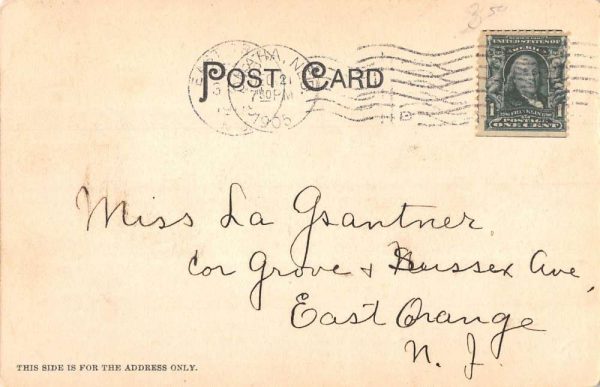 3.50
POST CARD
7 30 PM
1905
UNITED STATES OF AMERICA
1 1
POSTAGE
ONE CENT
Miss La
cor Grove & Sussex Ave,
East Orange
N. J.
THIS SIDE IS FOR THE ADDRESS ONLY.